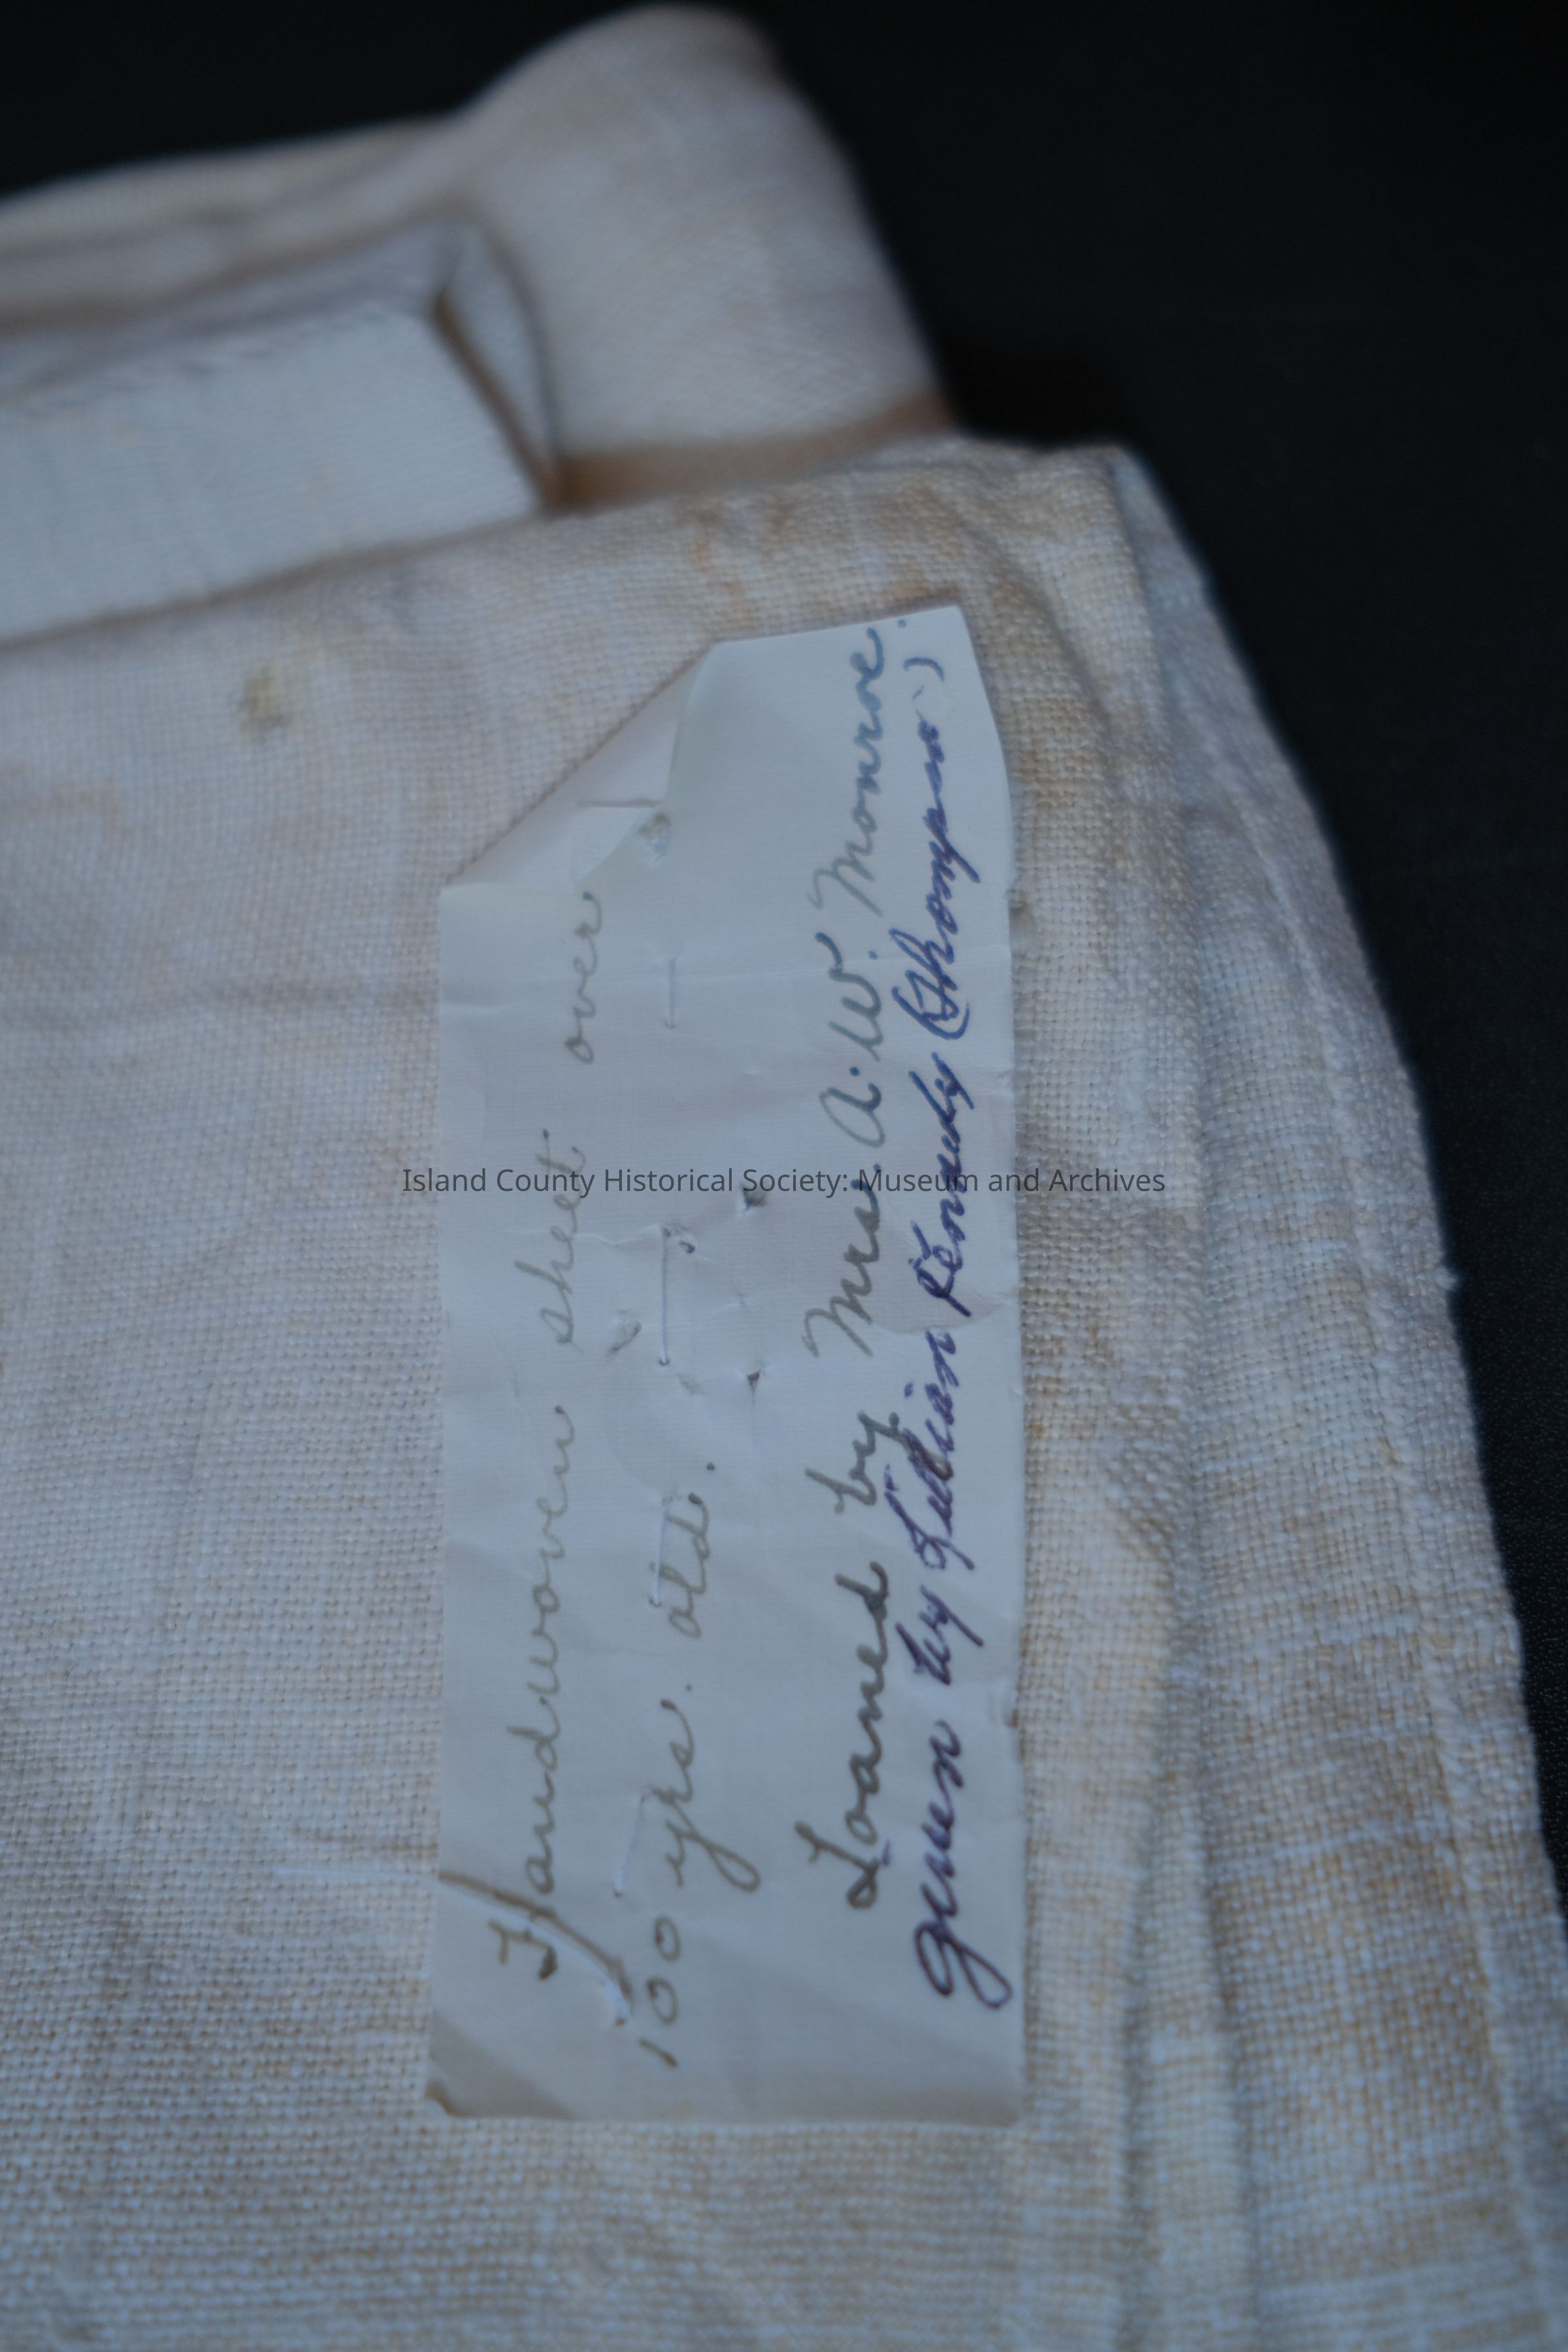 Handwoven sheet over
100 yrs. old.
Loaned by Mrs. A. W. Monroe.
given by Lillian Kennedy (Thompson)
Island County Historical Society: Museum and Archives